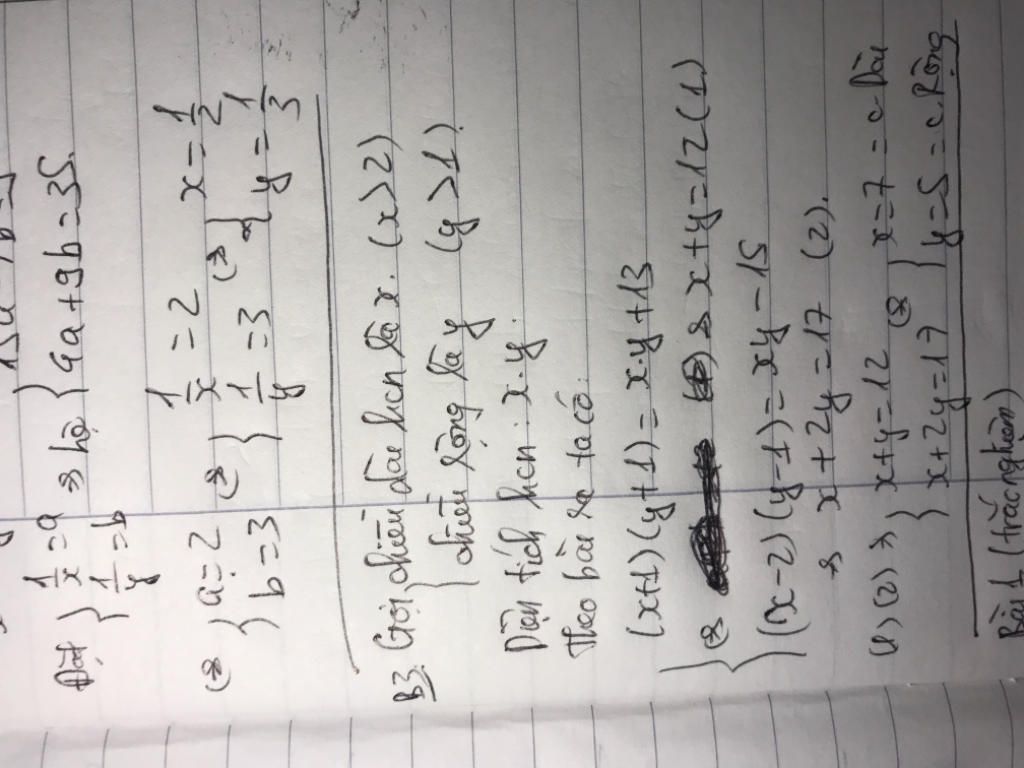 15a - 7b = 9
Đặt { 1/x = a => hệ { 4a + 9b = 35.
1/y = b
<=> { a = 2 <=> { 1/x = 2 <=> { x = 1/2
b = 3 1/y = 3 y = 1/3
B3. Gọi { chiều dài hcn là x. (x > 2)
chiều rộng là y (y > 1).
Diện tích hcn: x.y.
Theo bài ra ta có:
{ (x+1)(y+1) = x.y + 13
<=> => x + y = 12 (1)
(x-2)(y-1) = xy - 15
=> x + 2y = 17 (2).
(1), (2) => { x + y = 12 <=> { x = 7 = c. Dài
x + 2y = 17 y = 5 = c. Rộng
Bài 1 (trắc nghiệm)